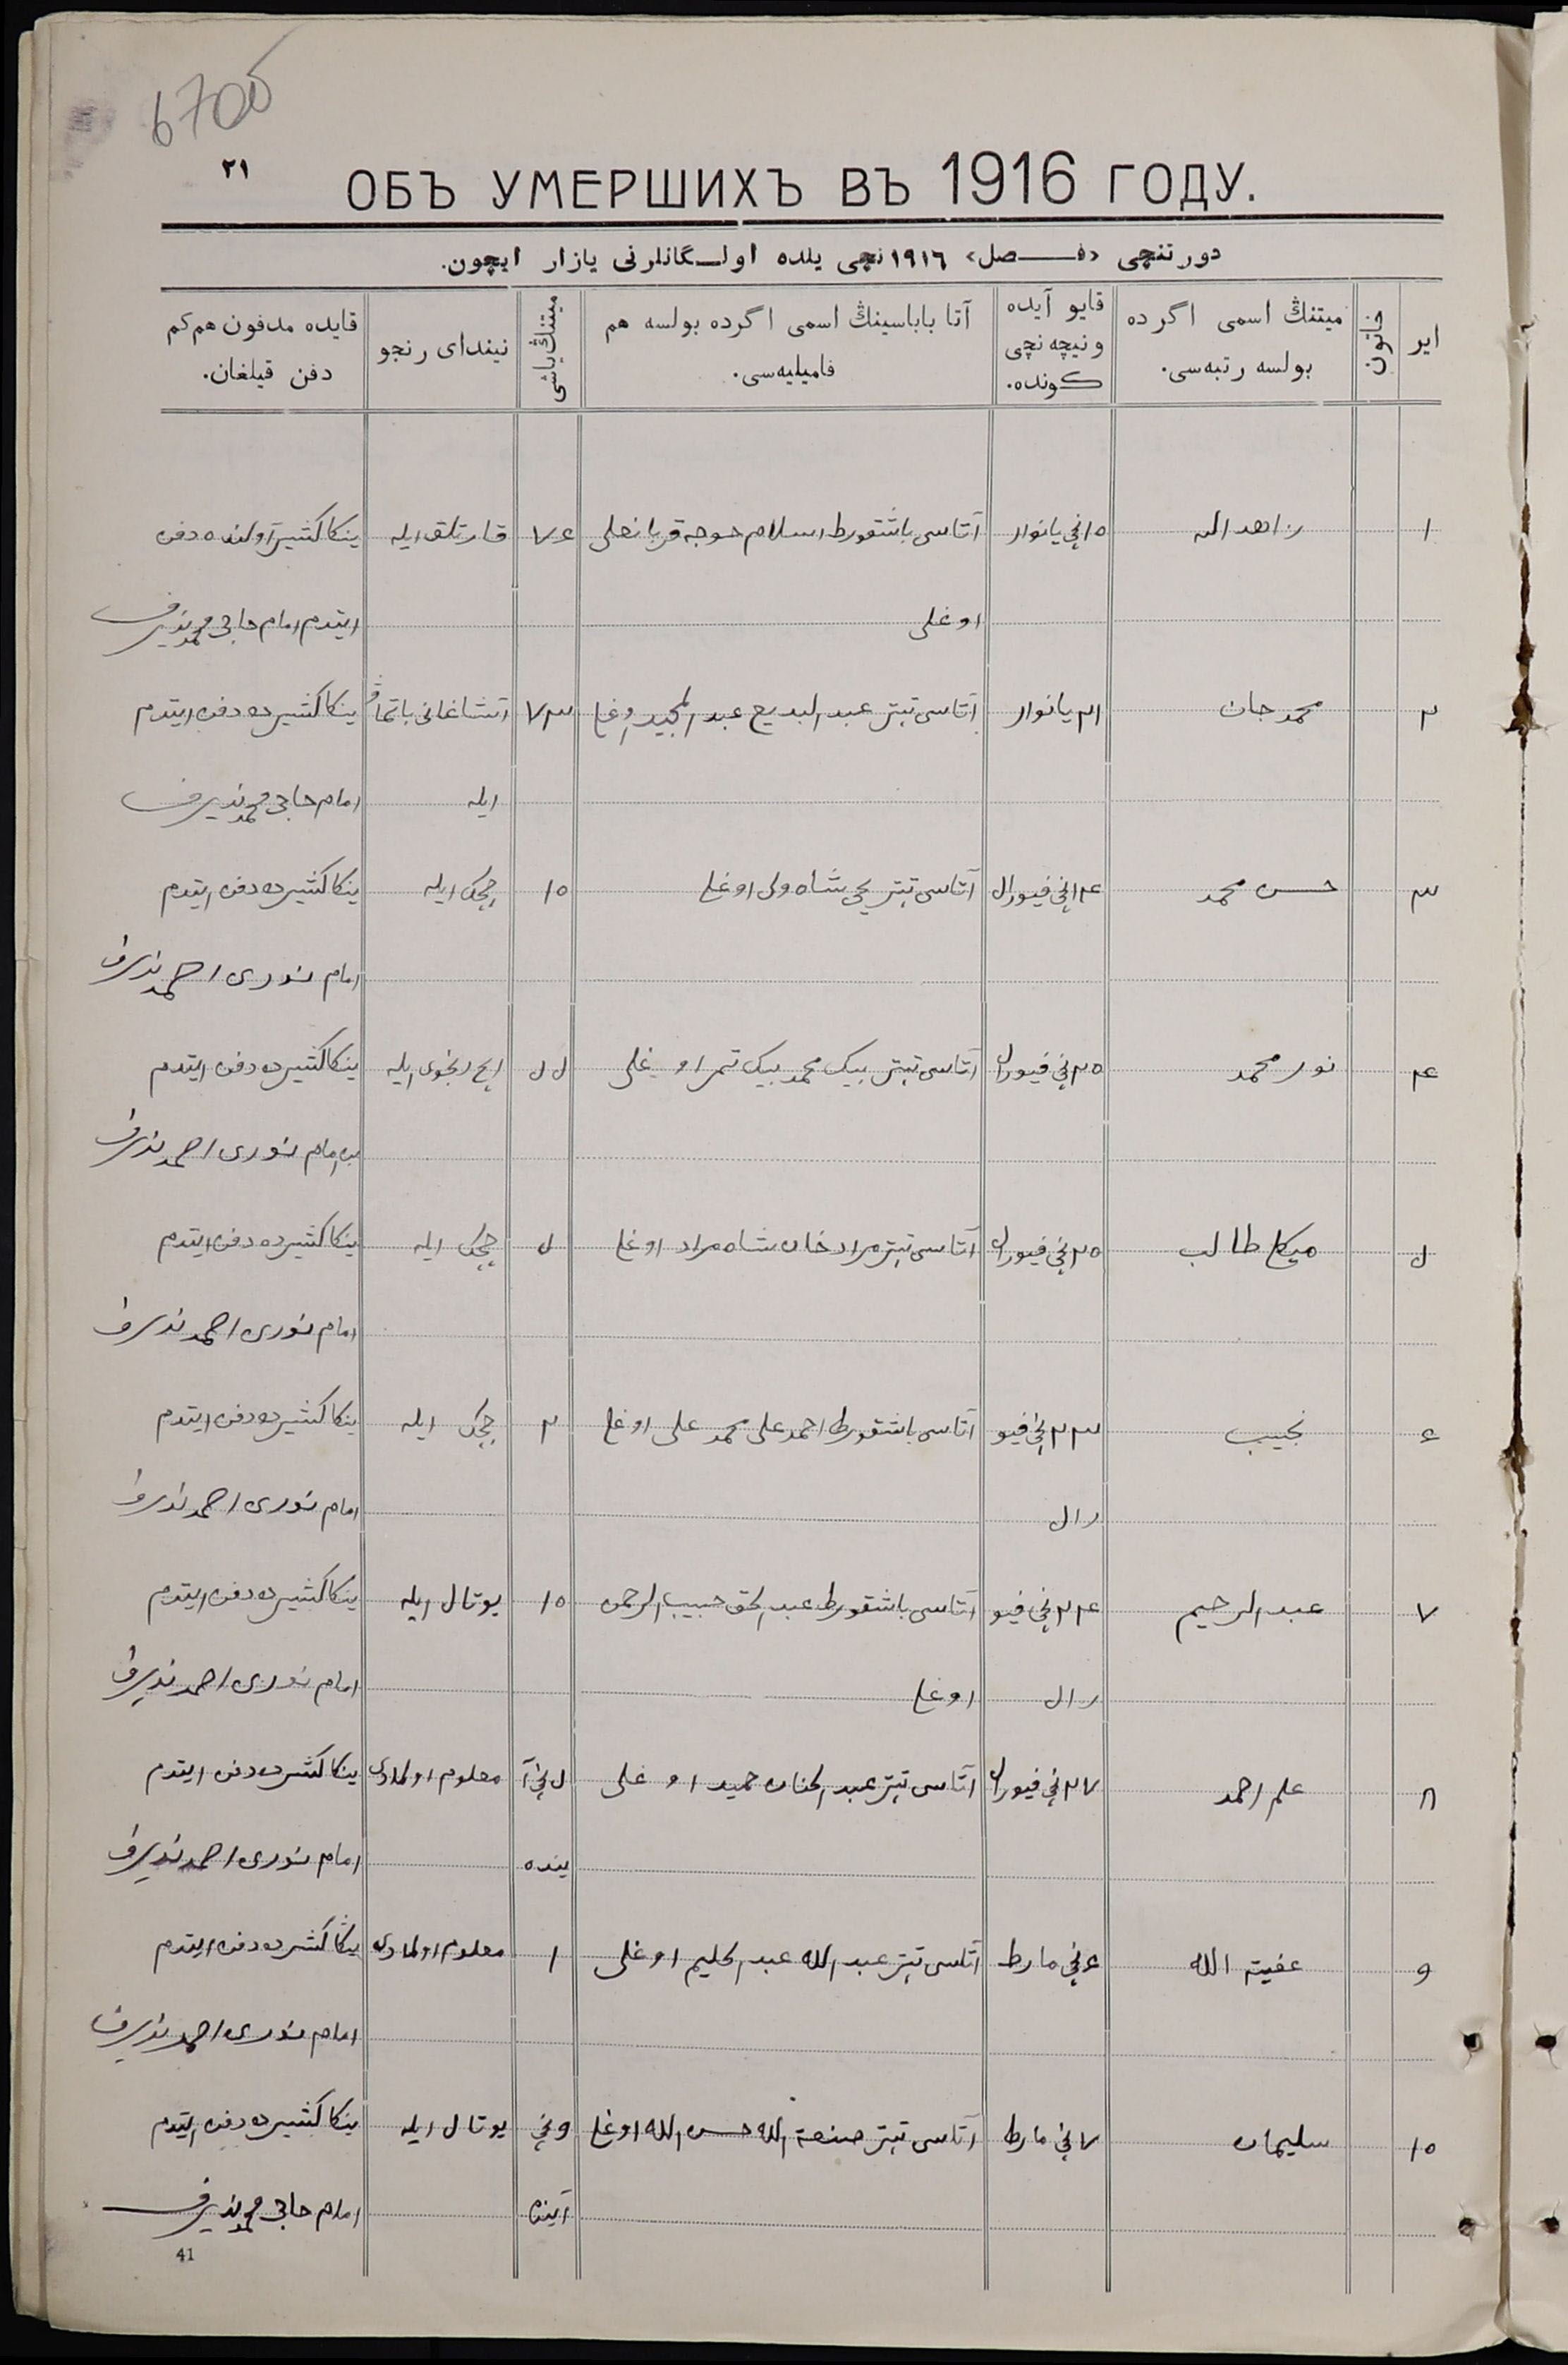 6705
٢١
ОБЪ УМЕРШИХЪ ВЪ 1916 ГОДУ.
دورتنچی «فـصل» ١٩١٦ نچی یلده اولـگانلرنی یازار ایچون.
ایر
خاتون
میتنڭ اسمی اگرده
بولسه رتبه‌سی.
قایو آیده
و نیچه نچی
کونده.
آتا باباسینڭ اسمی اگرده بولسه هم
فامیلیه‌سی.
میتنڭ یاشی
نیندای رنجو
قایده مدفون هم کم
دفن قیلغان.
١ زاهد الله ١٥نچی یانوار آتاسی باشقورط اسلام خوجه قربانعلی ٧٤ قارتلق ایله ینکا کتشیر آولنده دفن
اوغلی ایتدم امام حاجی محمد نذیرف
٢ محمد جان ٢١ یانوار آتاسی تبتر عبد البدیع عبد المجید اوغلی ٧٣ ینکا کتشیرده دفن ایتدم
ایله امام حاجی محمد نذیرف
٣ حسن محمد ١٤نچی فیورال آتاسی تبتر یحی شاه ولی اوغلی ١٥ چچک ایله ینکا کتشیرده دفن ایتدم
امام نوری احمد نذیرف
٤ نور محمد ٢٥نچی فیورال آتاسی تبتر بیک محمد بیک تمر اوغلی ٥٥ ایچ رنجوی ایله ینکا کتشیرده دفن ایتدم
امام نوری احمد نذیرف
٥ طالب ٢٥نچی فیورال آتاسی تبتر مراد خان شاه مراد اوغلی ٥ چچک ایله ینکا کتشیرده دفن ایتدم
امام نوری احمد نذیرف
٦ نجیب ٢٣نچی فیو آتاسی باشقورط احمد علی محمد علی اوغلی ٢ چچک ایله ینکا کتشیرده دفن ایتدم
رال امام نوری احمد نذیرف
٧ عبد الرحیم ٢٤نچی فیو آتاسی باشقورط عبد الحق حبیب الرحمن ١٥ یوتال ایله ینکا کتشیرده دفن ایتدم
رال اوغلی امام نوری احمد نذیرف
٨ علم احمد ٢٧نچی فیورال آتاسی تبتر عبد الحنان حمید اوغلی ٥نچی آ معلوم اولمادی ینکا کتشیرده دفن ایتدم
ینده امام نوری احمد نذیرف
٩ عفیة الله ٦نچی مارط آتاسی تبتر عبد الله عبد الحلیم اوغلی ١ معلوم اولمادی ینکا کتشیرده دفن ایتدم
امام نوری احمد نذیرف
١٥ سلیمان ٧نچی مارط آتاسی تبتر صنعة الله حسن الله اوغلی ٩نچی یوتال ایله ینکا کتشیرده دفن ایتدم
آینده امام حاجی محمد نذیرف
41